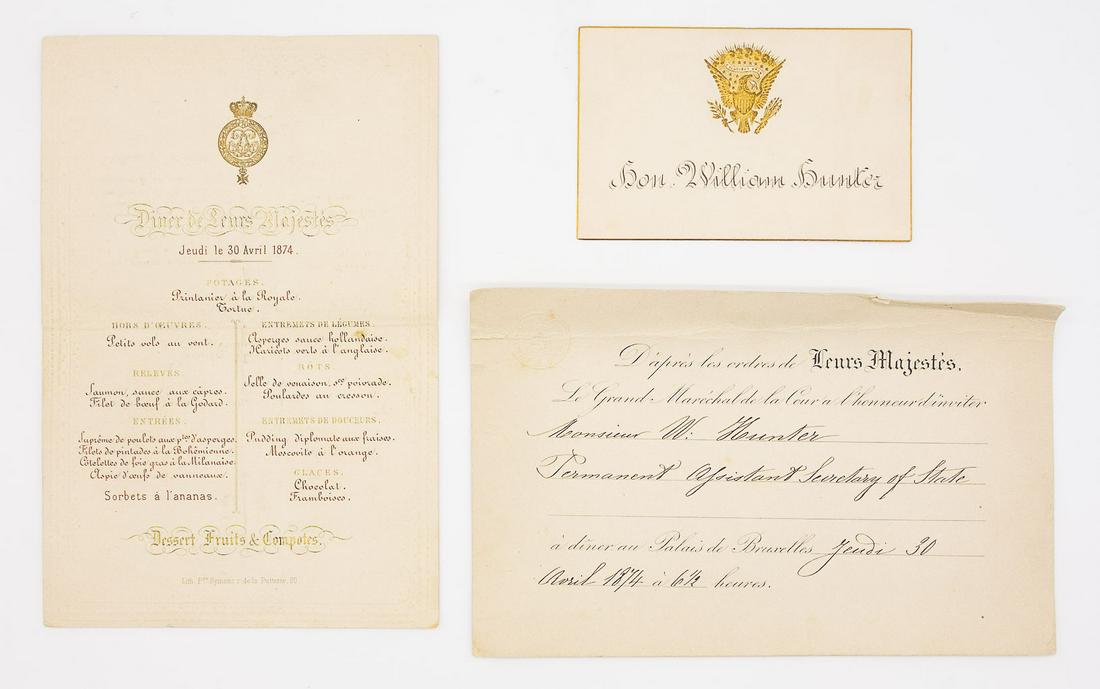 Dîner de Leurs Majestés
Jeudi le 30 Avril 1874.
POTAGES.
Printanier à la Royale.
Tortue.
HORS D'ŒUVRES.
Petits vols au vent.
RELEVÉS.
Saumon, sauce aux câpres.
Filet de bœuf à la Godard.
ENTRÉES.
Suprême de poulets aux ptes d'asperges.
Filets de pintades à la Bohémienne.
Côtelettes de foie gras à la Milanaise.
Aspic d'œufs de vanneaux.
Sorbets á l'ananas.
ENTREMETS DE LÉGUMES.
Asperges sauce hollandaise.
Haricots verts à l'anglaise.
ROTS.
Selle de venaison, sce poivrade.
Poulardes au cresson.
ENTREMETS DE DOUCEURS.
Pudding diplomate aux fraises.
Moscovite à l'orange.
GLACES.
Chocolat.
Framboises.
Dessert Fruits & Compotes.
Lith. Symons r. de la Putterie,
Hon. William Hunter
D'après les ordres de Leurs Majestés,
Le Grand Maréchal de la Cour a l'honneur d'inviter
Monsieur W: Hunter
Permanent Assistant Secretary of State
à dîner au Palais de Bruxelles Jeudi 30
Avril 1874 à 6½ heures.